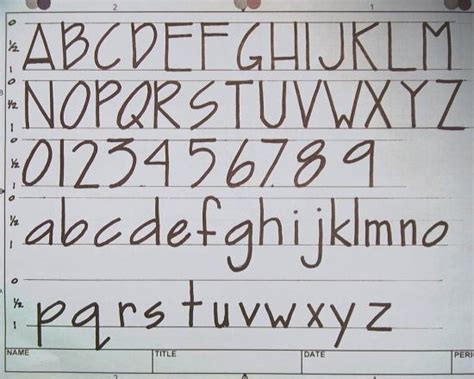 2 1
0 ½ 1 ABCDEFGHIJKLM
0 ½ 1 NOPQRSTUVWXYZ
0 ½ 1 0123456789
0 ½ 1 abcdefghijklmno
0 ½ 1 pqrstuvwxyz
NAME TITLE DATE PERI
2 1